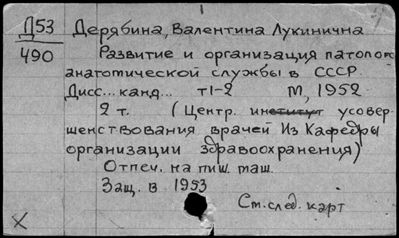 Д53 Дерябина, Валентина Лукинична
490 Развитие и организация патолого
анатомической службы в СССР
Дисс... канд... т1-2 М, 1952
2 т. (Центр. институт усовер
шенствования врачей Из Кафедры
организации здравоохранения)
Отпеч. на пиш. маш.
Защ. в 1953
См. след. карт
X